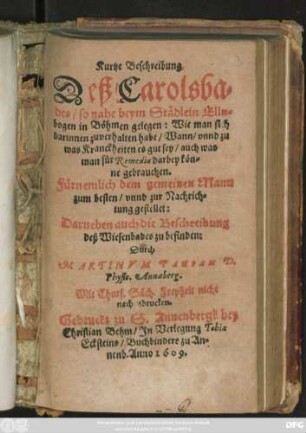 Kurtze Beschreibung
Deß Carolsba-
des / so nahe beym Städlein Elln-
bogen in Böhmen gelegen: Wie man sich
darinnen zuverhalten habe / Wann / vnnd zu
was Kranckheiten es gut sey / auch was
man für Remedia darbey kön-
ne gebrauchen.
Fürnemlich dem gemeinen Mann
zum besten / vnnd zur Nachrich-
tung gestellet:
Darneben auch die Beschreibung
deß Wiesenbades zu befinden:
Durch
MARTINVM PANSAM D.
Physic. Annaberg.
Mit Churf. Säch. Freyheit nicht
nach drucken.
Gedruckt zu S. Annenbergk bey
Christian Behm / In Verlegung Tobiæ
Ecksteins / Buchbindere zu An-
nenb. Anno 1609.
DFG